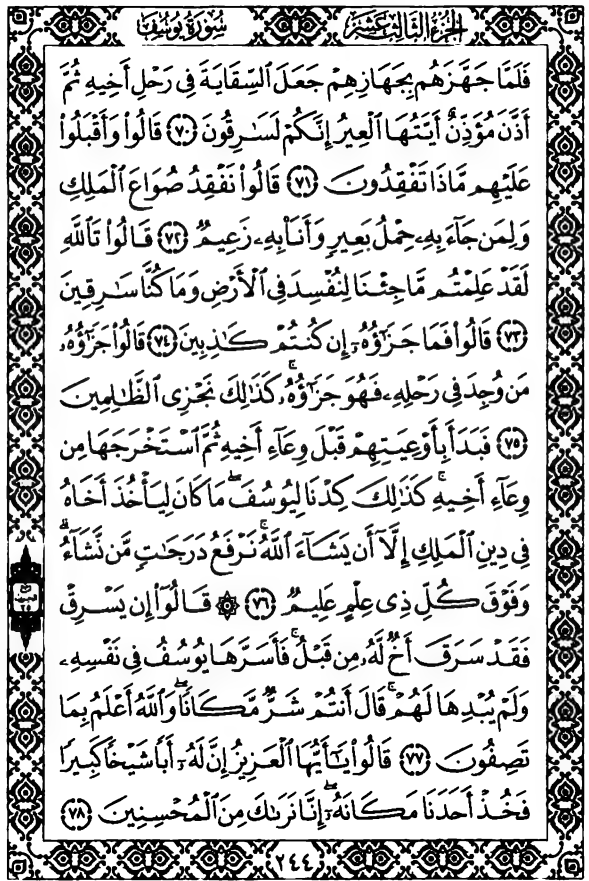 الجزء الثالث عشر
سورة يوسف
فَلَمَّا جَهَّزَهُم بِجَهَازِهِمْ جَعَلَ ٱلسِّقَايَةَ فِى رَحْلِ أَخِيهِ ثُمَّ
أَذَّنَ مُؤَذِّنٌ أَيَّتُهَا ٱلْعِيرُ إِنَّكُمْ لَسَـٰرِقُونَ ﴿٧٠﴾ قَالُوا۟ وَأَقْبَلُوا۟
عَلَيْهِم مَّاذَا تَفْقِدُونَ ﴿٧١﴾ قَالُوا۟ نَفْقِدُ صُوَاعَ ٱلْمَلِكِ
وَلِمَن جَآءَ بِهِۦ حِمْلُ بَعِيرٍ وَأَنَا۠ بِهِۦ زَعِيمٌ ﴿٧٢﴾ قَالُوا۟ تَٱللَّهِ
لَقَدْ عَلِمْتُم مَّا جِئْنَا لِنُفْسِدَ فِى ٱلْأَرْضِ وَمَا كُنَّا سَـٰرِقِينَ
﴿٧٣﴾ قَالُوا۟ فَمَا جَزَٰٓؤُهُۥٓ إِن كُنتُمْ كَـٰذِبِينَ ﴿٧٤﴾ قَالُوا۟ جَزَٰٓؤُهُۥ
مَن وُجِدَ فِى رَحْلِهِۦ فَهُوَ جَزَٰٓؤُهُۥ ۚ كَذَٰلِكَ نَجْزِى ٱلظَّـٰلِمِينَ
﴿٧٥﴾ فَبَدَأَ بِأَوْعِيَتِهِمْ قَبْلَ وِعَآءِ أَخِيهِ ثُمَّ ٱسْتَخْرَجَهَا مِن
وِعَآءِ أَخِيهِ ۚ كَذَٰلِكَ كِدْنَا لِيُوسُفَ ۖ مَا كَانَ لِيَأْخُذَ أَخَاهُ
فِى دِينِ ٱلْمَلِكِ إِلَّآ أَن يَشَآءَ ٱللَّهُ ۚ نَرْفَعُ دَرَجَـٰتٍ مَّن نَّشَآءُ ۗ
وَفَوْقَ كُلِّ ذِى عِلْمٍ عَلِيمٌ ﴿٧٦﴾ ۞ قَالُوٓا۟ إِن يَسْرِقْ
فَقَدْ سَرَقَ أَخٌ لَّهُۥ مِن قَبْلُ ۚ فَأَسَرَّهَا يُوسُفُ فِى نَفْسِهِۦ
وَلَمْ يُبْدِهَا لَهُمْ ۚ قَالَ أَنتُمْ شَرٌّ مَّكَانًا ۖ وَٱللَّهُ أَعْلَمُ بِمَا
تَصِفُونَ ﴿٧٧﴾ قَالُوا۟ يَـٰٓأَيُّهَا ٱلْعَزِيزُ إِنَّ لَهُۥٓ أَبًا شَيْخًا كَبِيرًا
فَخُذْ أَحَدَنَا مَكَانَهُۥٓ ۖ إِنَّا نَرَىٰكَ مِنَ ٱلْمُحْسِنِينَ ﴿٧٨﴾
٢٤٤